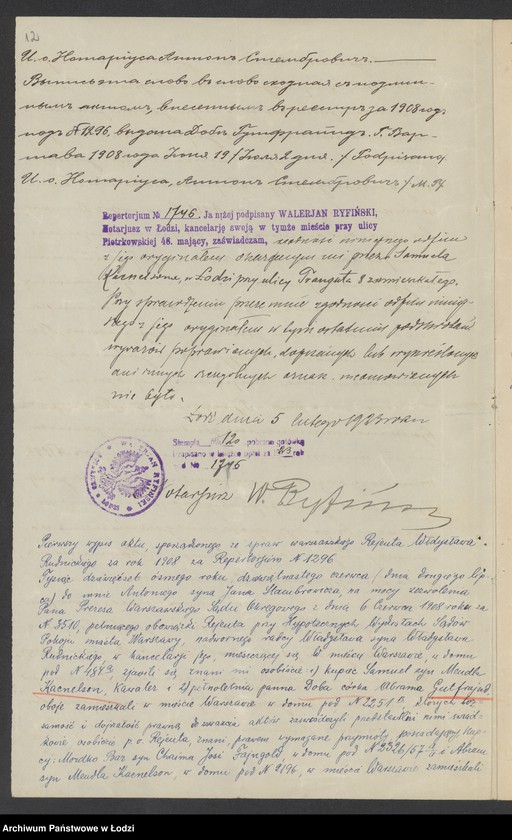 12
И. о. Нотаріуса Антонъ Стембровичъ.
Выпись эта слово въ слово сходная съ подлин-
нымъ актомъ, внесеннымъ въ реестръ за 1908 годъ
подъ № 1296, выдана Добѣ Гутфрайндъ. Г. Вар-
шава 1908 года Іюня 19 / Іюля 2 дня. / Подписалъ
И. о. Нотаріуса, Антонъ Стембровичъ / М. П.
Repertorjum № 1746. Ja niżej podpisany WALERJAN RYFIŃSKI,
Notarjusz w Łodzi, kancelarję swoją w tymże mieście przy ulicy
Piotrkowskiej 46, mający, zaświadczam, zgodność niniejszego odpisu
z jego oryginałem okazanym mi przez Samuela
Kacnelsona, w Łodzi przy ulicy Traugutta 8 zamieszkałego.
Przy sprawdzeniu przeze mnie zgodności odpisu niniej-
szego z jego oryginałem w tym ostatnim podskrobań
wyrazów poprawionych, dopisanych lub wykreślonych
ani innych szczególnych oznak nieomówionych
nie było.
Łódź dnia 5 lutego 1923 roku
Stempla 120 pobrano gotówką
i zapisano w książce opłat za 23 rok
pod № 1746
WALERJAN RYFIŃSKI
Notarjusz W. Ryfiński
Pierwszy wypis aktu, sporządzonego ze spraw warszawskiego Rejenta Władysława
Rudnickiego za rok 1908 za Repertorjum N 1296
Tysiąc dziewięćset ósmego roku, dziewiętnastego czerwca / dnia drugiego lip-
ca / do mnie Antoniego syna Jana Stembrowicza, na mocy zezwolenia
Pana Prezesa Warszawskiego Sądu Okręgowego z dnia 6 Czerwca 1908 roku za
N 3510, pełniącego obowiązki Rejenta przy Hypotecznych Wydziałach Sądów
Pokoju miasta Warszawy, nadwornego radcy Władysława syna Władysława
Rudnickiego w kancelarji jego, mieszczącej się w mieście Warszawie, w domu
pod N stawili się, znani mi osobiście: 1) kupiec Samuel syn Mendla
Kacnelson, kawaler i 2) pełnoletnia panna Doba córka Abrama Gutfrajnd,
oboje zamieszkali w mieście Warszawie w domu pod N 2251
samość i dojrzałość prawną do zawarcia aktów zaświadczyli przedstawieni nimi świad-
kowie osobiście p. o. Rejenta, znani, prawem wymagane przymioty posiadający kup-
cy: Mordko Ber syn Chaima Josi Fajngold, w domu pod N 2326/57 i Abram
syn Mendla Kacnelson, w domu pod N 2196, w mieście Warszawie zamieszkali
Archiwum Państwowe w Łodzi